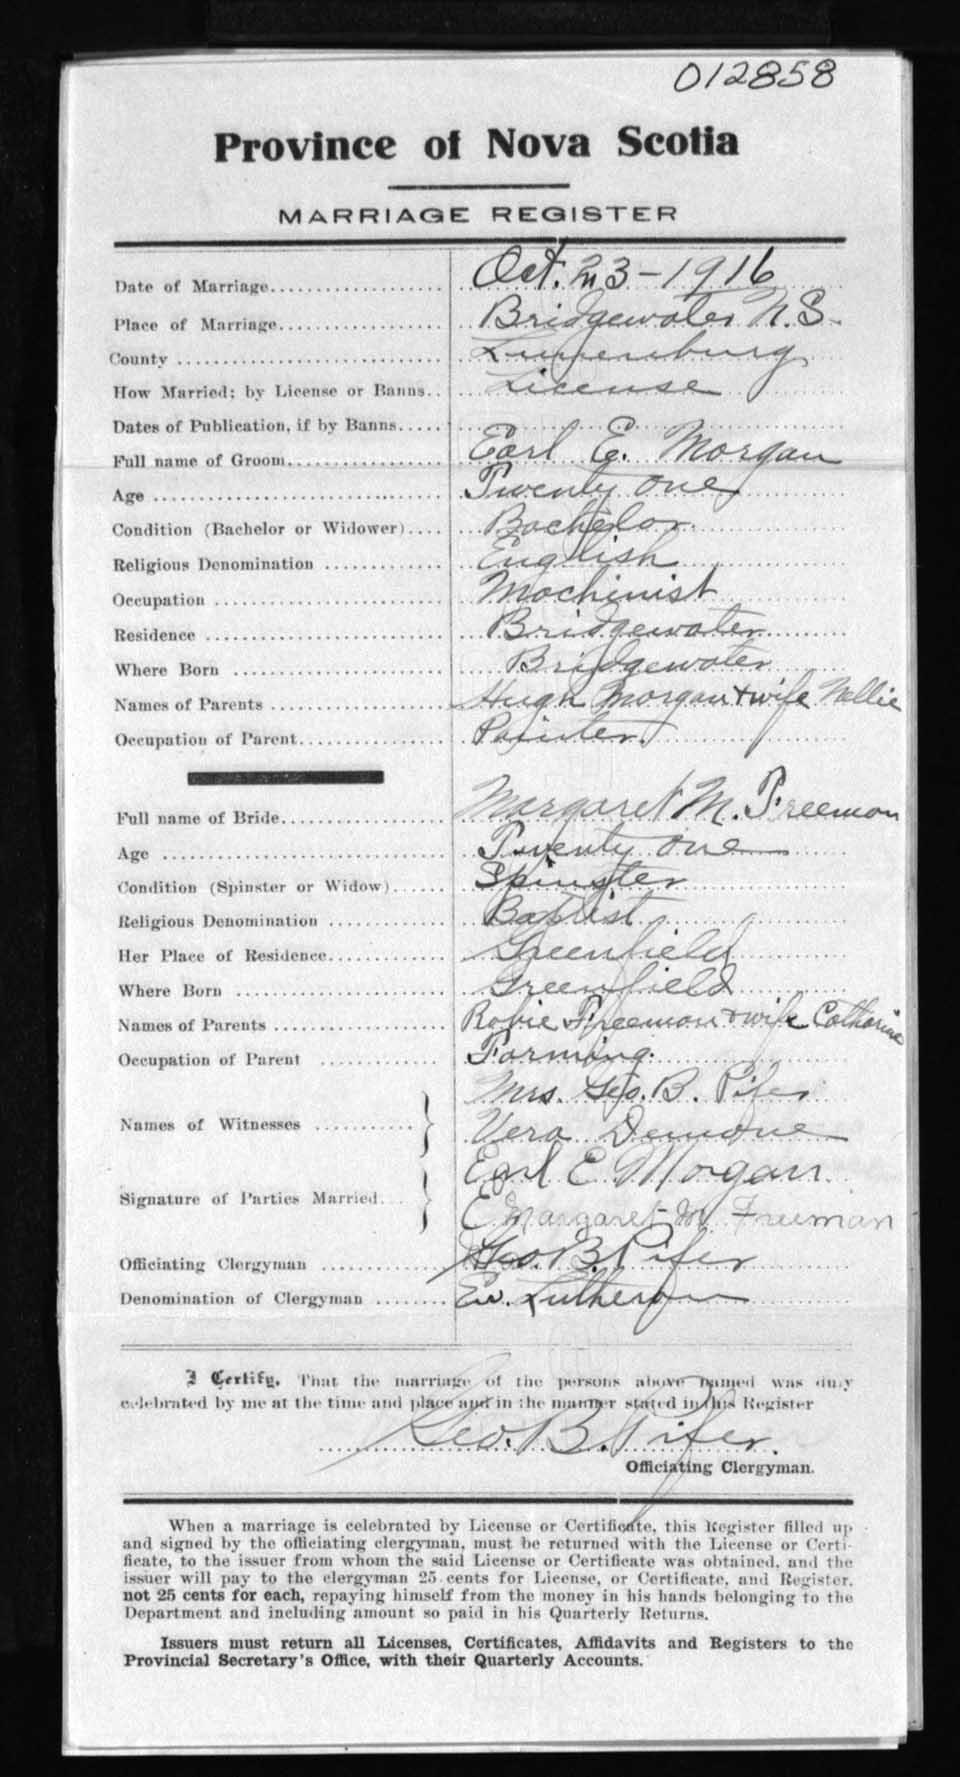 012858
Province of Nova Scotia
MARRIAGE REGISTER
Date of Marriage Oct. 23 - 1916
Place of Marriage Bridgewater N.S.
County Lunenburg
How Married; by License or Banns License
Dates of Publication, if by Banns
Full name of Groom Earl E. Morgan
Age Twenty one
Condition (Bachelor or Widower) Bachelor
Religious Denomination English
Occupation Machinist
Residence Bridgewater
Where Born Bridgewater
Names of Parents Hugh Morgan + wife Nallie
Occupation of Parent Painter
Full name of Bride Margaret M. Freeman
Age Twenty one
Condition (Spinster or Widow) Spinster
Religious Denomination Baptist
Her Place of Residence Greenfield
Where Born Greenfield
Names of Parents Robie Freeman + wife Catharine
Occupation of Parent Farming
Names of Witnesses Mrs. Geo. B. Pifer
Vera Demone
Signature of Parties Married Earl E Morgan
E Margaret M Freeman
Officiating Clergyman Geo. B. Pifer
Denomination of Clergyman Ev. Lutheran
I Certify, That the marriage of the persons above named was duly
celebrated by me at the time and place and in the manner stated in this Register
Geo. B. Pifer.
Officiating Clergyman.
When a marriage is celebrated by License or Certificate, this Register filled up
and signed by the officiating clergyman, must be returned with the License or Certi-
ficate, to the issuer from whom the said License or Certificate was obtained, and the
issuer will pay to the clergyman 25 cents for License, or Certificate, and Register,
not 25 cents for each, repaying himself from the money in his hands belonging to the
Department and including amount so paid in his Quarterly Returns.
Issuers must return all Licenses, Certificates, Affidavits and Registers to the
Provincial Secretary's Office, with their Quarterly Accounts.